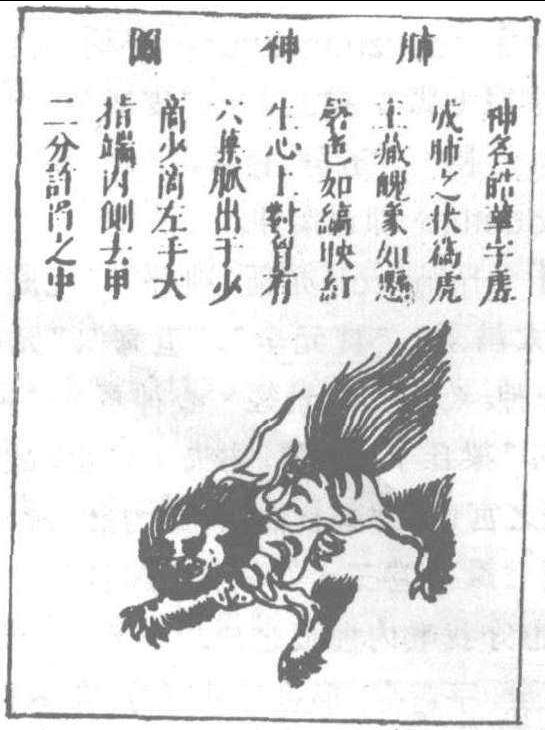 肺神圖
神名皓華字虛
成肺之狀爲虎
主藏魄象如懸
磬色如縞映紅
生心上對胷有
六葉脈出于少
商少商左手大
指端內側去甲
二分許陷之中